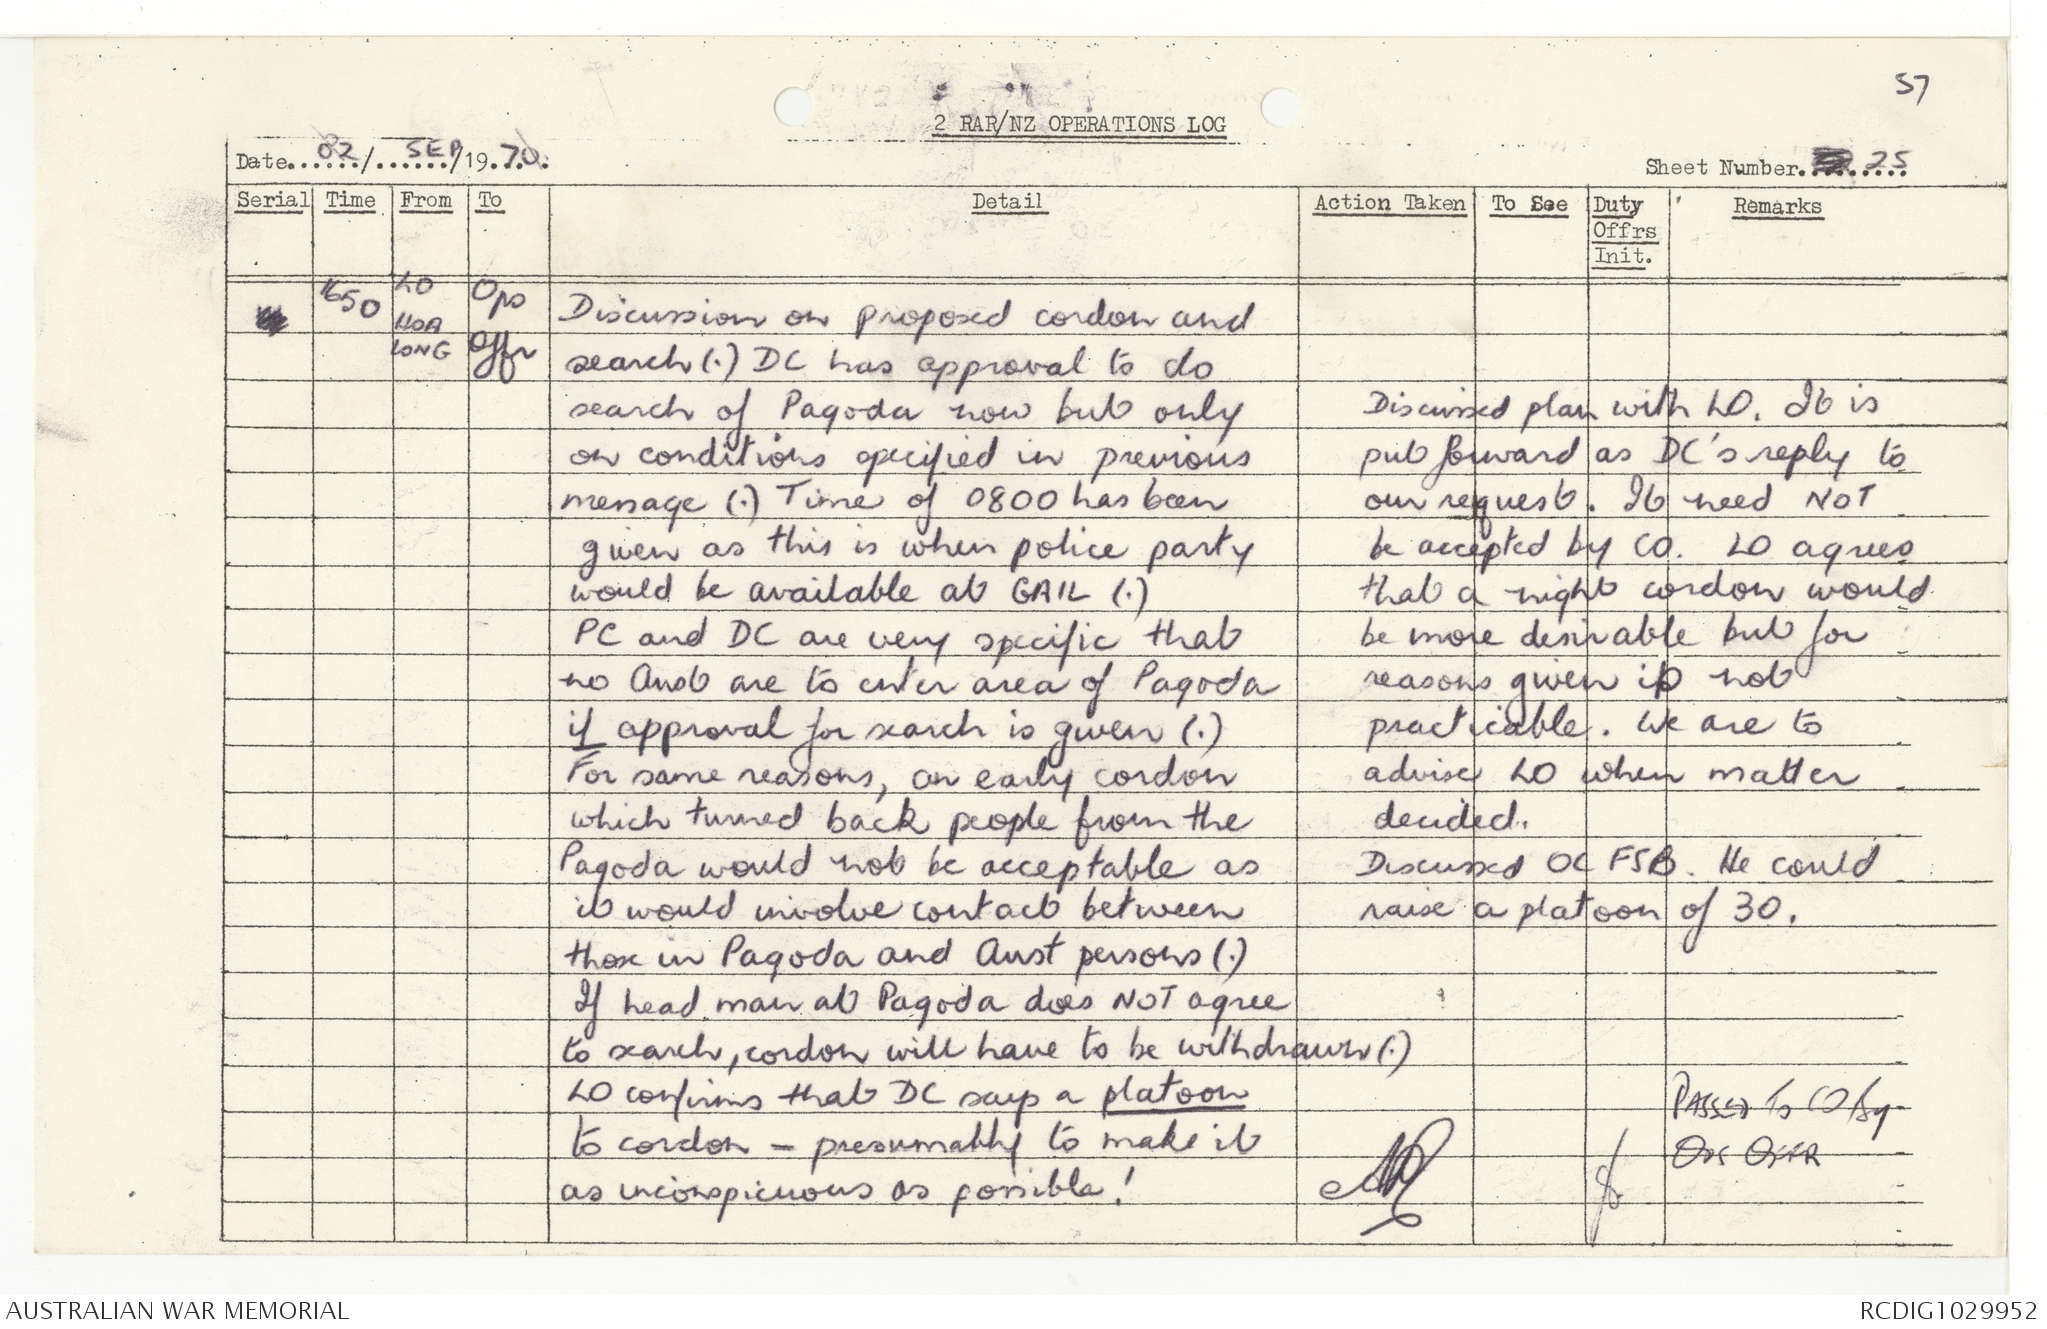 57
2 RAR/NZ OPERATIONS LOG
Date......02/...SEP.../1970.
Sheet Number.........25
Serial Time From To Detail Action Taken To See Duty Offrs Init. Remarks
1650
LO
HOA
LONG
Ops
Offr
Discussion on proposed cordon and
search (.) DC has approval to do
search of Pagoda now but only
on conditions specified in previous
message (.) Time of 0800 has been
given as this is when police party
would be available at GAIL (.)
PC and DC are very specific that
no Aust are to enter area of Pagoda
if approval for search is given (.)
For same reasons, an early cordon
which turned back people from the
Pagoda would not be acceptable as
it would involve contact between
those in Pagoda and Aust persons (.)
If head man at Pagoda does NOT agree
to search, cordon will have to be withdrawn (.)
LO confirms that DC says a platoon
to cordon - presumably to make it
as inconspicuous as possible!
Discussed plan with LO. It is
put forward as DC's reply to
our request. It need NOT
be accepted by CO. LO agrees
that a night cordon would
be more desirable but for
reasons given is not
practicable. We are to
advise LO when matter
decided.
Discussed OC FSB. He could
raise a platoon of 30.
PASSED TO CO By
OPS OFFR
AUSTRALIAN WAR MEMORIAL
RCDIG1029952